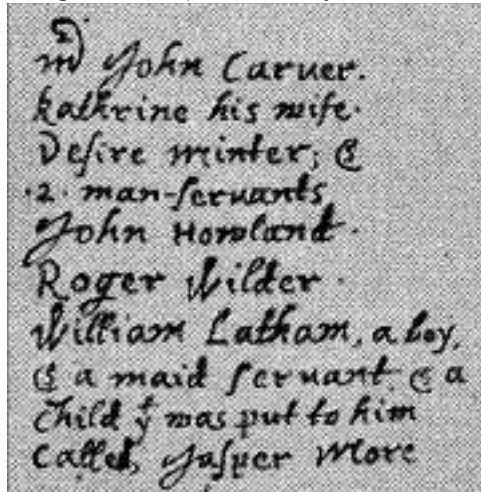 mr John Carver.
kathrine his wife.
Desire minter; &
.2. man-servants
John Howland.
Roger Wilder.
William Latham, a boy,
& a maid servant. & a
child yt was put to him
called, Jasper More